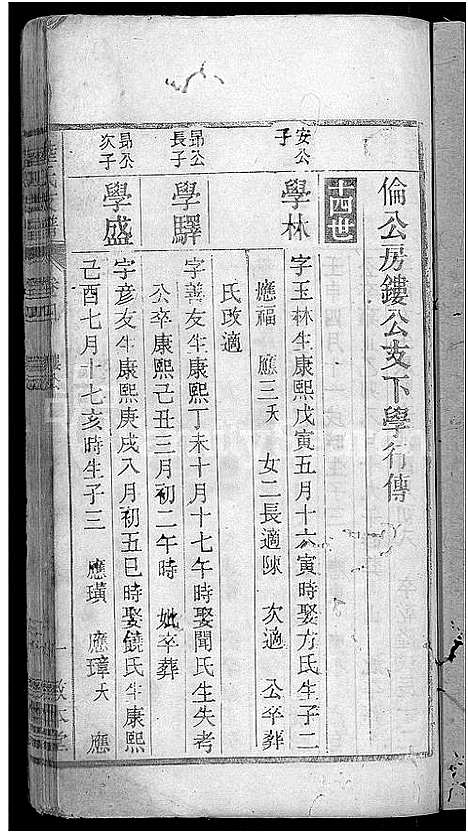 倫公房鏤公支下學行傳
十四世
安公子
學林
字玉林生康熙戊寅五月十六寅時娶方氏生子二
應福 應三夭 女二長適陳 次適 公卒葬
氏改適
昻公長子
學驛
字善友生康熙丁未十月十七午時娶聞氏生失考
公卒康熙己丑三月初二午時 妣卒葬
昻公次子
學盛
字彦友生康熙庚戌八月初五巳時娶饒氏生康熙
己酉七月十七亥時生子三 應璜 應璋夭 應